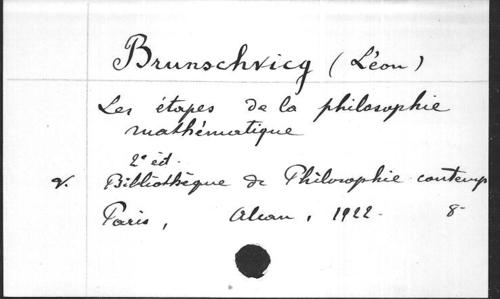 Brunschvicg (Léon)
Les étapes de la philosophie
mathématique
2e éd.
v. Bibliothèque de Philosophie contemp
Paris, Alcan, 1922. 8-